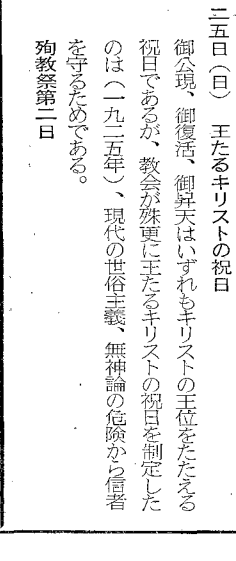 二五日（日）　王たるキリストの祝日
御公現、御復活、御昇天はいずれもキリストの王位をたたえる
祝日であるが、教会が殊更に王たるキリストの祝日を制定した
のは（一九二五年）、現代の世俗主義、無神論の危険から信者
を守るためである。
殉教祭第二日